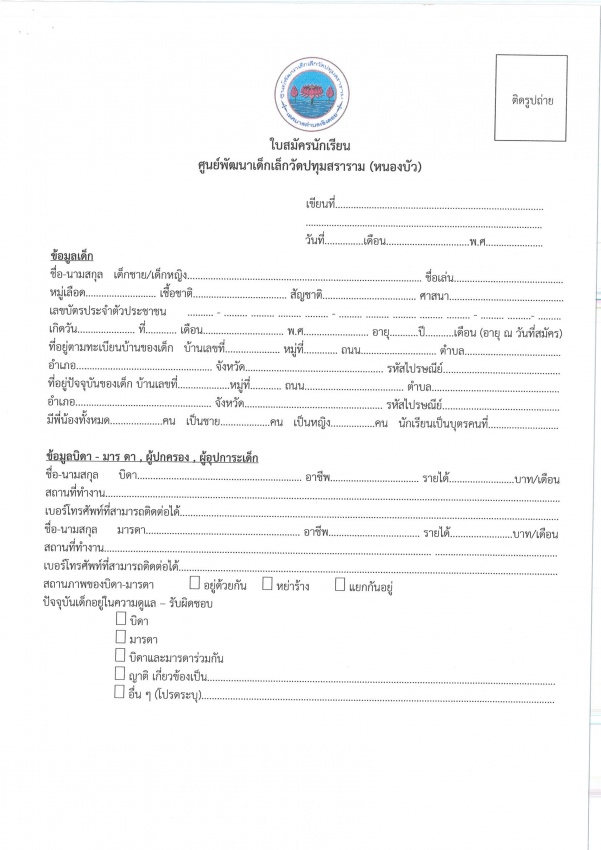 ติดรูปถ่าย
ใบสมัครนักเรียน
ศูนย์พัฒนาเด็กเล็กวัดปทุมสราราม (หนองบัว)
เขียนที่......................................................................
...............................................................................
วันที่..............เดือน............................พ.ศ....................
ข้อมูลเด็ก
ชื่อ-นามสกุล เด็กชาย/เด็กหญิง.............................................................................. ชื่อเล่น.....................................
หมู่เลือด........................ เชื้อชาติ............................... สัญชาติ................................ ศาสนา......................................
เลขบัตรประจำตัวประชาชน ......... - ......... ......... ......... ......... - ......... ......... ......... ......... ......... - ......... ......... - .........
เกิดวัน.................... ที่........... เดือน............................ พ.ศ........................... อายุ..........ปี..........เดือน (อายุ ณ วันที่สมัคร)
ที่อยู่ตามทะเบียนบ้านของเด็ก บ้านเลขที่................... หมู่ที่............ ถนน.......................... ตำบล................................
อำเภอ.............................................. จังหวัด............................................... รหัสไปรษณีย์........................................
ที่อยู่ปัจจุบันของเด็ก บ้านเลขที่..................หมู่ที่............ ถนน.......................................... ตำบล...........................................
อำเภอ.............................................. จังหวัด............................................... รหัสไปรษณีย์........................................
มีพี่น้องทั้งหมด..................คน เป็นชาย.................คน เป็นหญิง...............คน นักเรียนเป็นบุตรคนที่........................
ข้อมูลบิดา - มาร ดา , ผู้ปกครอง , ผู้อุปการะเด็ก
ชื่อ-นามสกุล บิดา........................................................ อาชีพ....................................... รายได้......................บาท/เดือน
สถานที่ทำงาน..........................................................................................................................................................
เบอร์โทรศัพท์ที่สามารถติดต่อได้...............................................................................................................................
ชื่อ-นามสกุล มารดา.................................................... อาชีพ............................... รายได้.....................บาท/เดือน
สถานที่ทำงาน..........................................................................................................................................................
เบอร์โทรศัพท์ที่สามารถติดต่อได้...............................................................................................................................
สถานภาพของบิดา-มารดา ☐ อยู่ด้วยกัน ☐ หย่าร้าง ☐ แยกกันอยู่
ปัจจุบันเด็กอยู่ในความดูแล – รับผิดชอบ
☐ บิดา
☐ มารดา
☐ บิดาและมารดาร่วมกัน
☐ ญาติ เกี่ยวข้องเป็น.....................................................................................................................
☐ อื่น ๆ (โปรดระบุ).......................................................................................................................